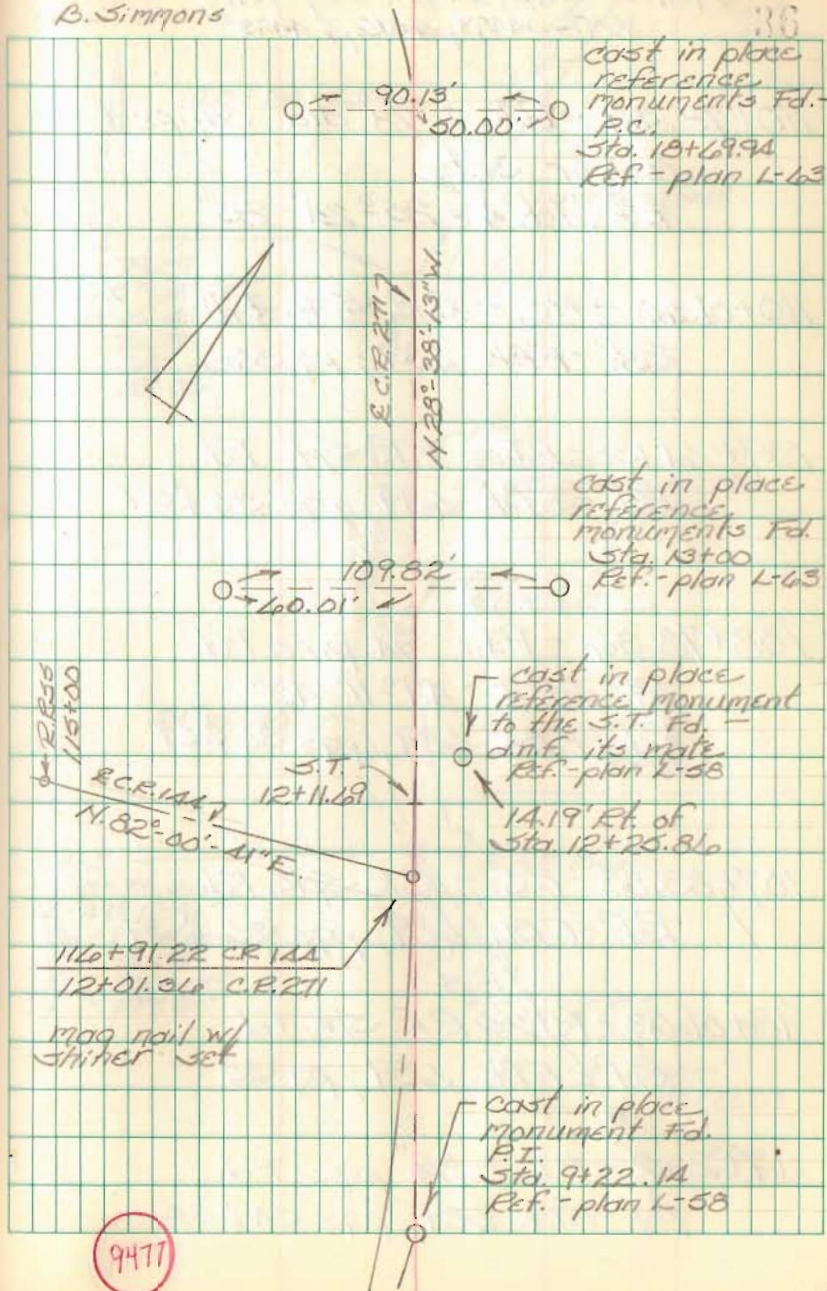 B. Simmons
36
cast in place
reference
monuments Fd.-
P.C.
Sta. 18+69.94
Ref.-plan L-63
90.13'
50.00'
C.R. 271
N.28°-38'-13"W.
cast in place
reference
monuments Fd.
Sta. 13+00
Ref.-plan L-63
109.82'
60.01'
115+00
cast in place
reference monument
to the S.T. Fd. -
d.n.f. its mate
Ref.-plan L-58
S.T.
12+11.69
14.19' Rt. of
Sta. 12+25.86
C.R. 144
N.82°-00'-41"E.
116+91.22 CR 144
12+01.36 C.R. 271
mag nail w/
shiner set
cast in place
monument Fd.
P.I.
Sta. 9+22.14
Ref.-plan L-58
9477